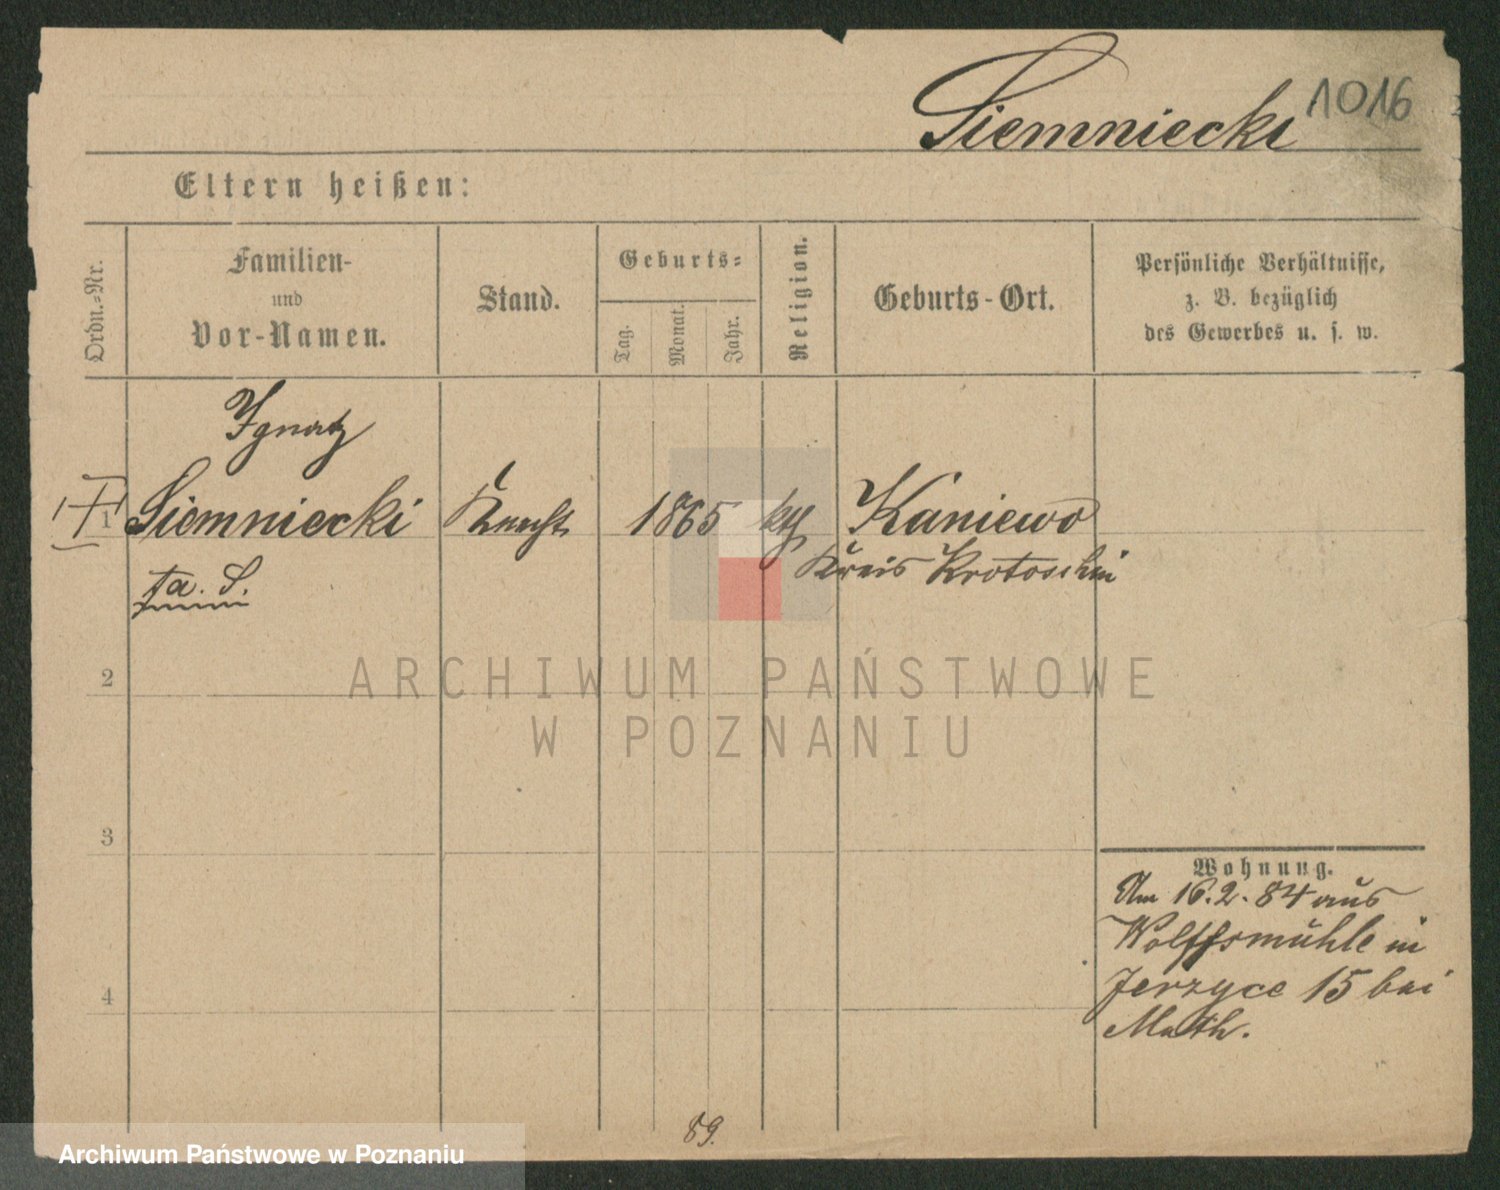 Siemniecki 1016
Eltern heißen:
Ordn.=Nr.
Familien-
und
Vor-Namen.
Stand.
Geburts=
Tag.
Monat.
Jahr.
Religion.
Geburts-Ort.
Persönliche Verhältnisse,
z. B. bezüglich
des Gewerbes u. s. w.
Ignatz
1 Siemniecki Knecht 1865 kth Kaniewo
Kreis Krotoschin
ta. S.
2
3
4
Wohnung.
Am 16.2.84 aus
Wolffsmühle in
Jerzyce 15 bei
Muth.
89.
ARCHIWUM PAŃSTWOWE
W POZNANIU
Archiwum Państwowe w Poznaniu